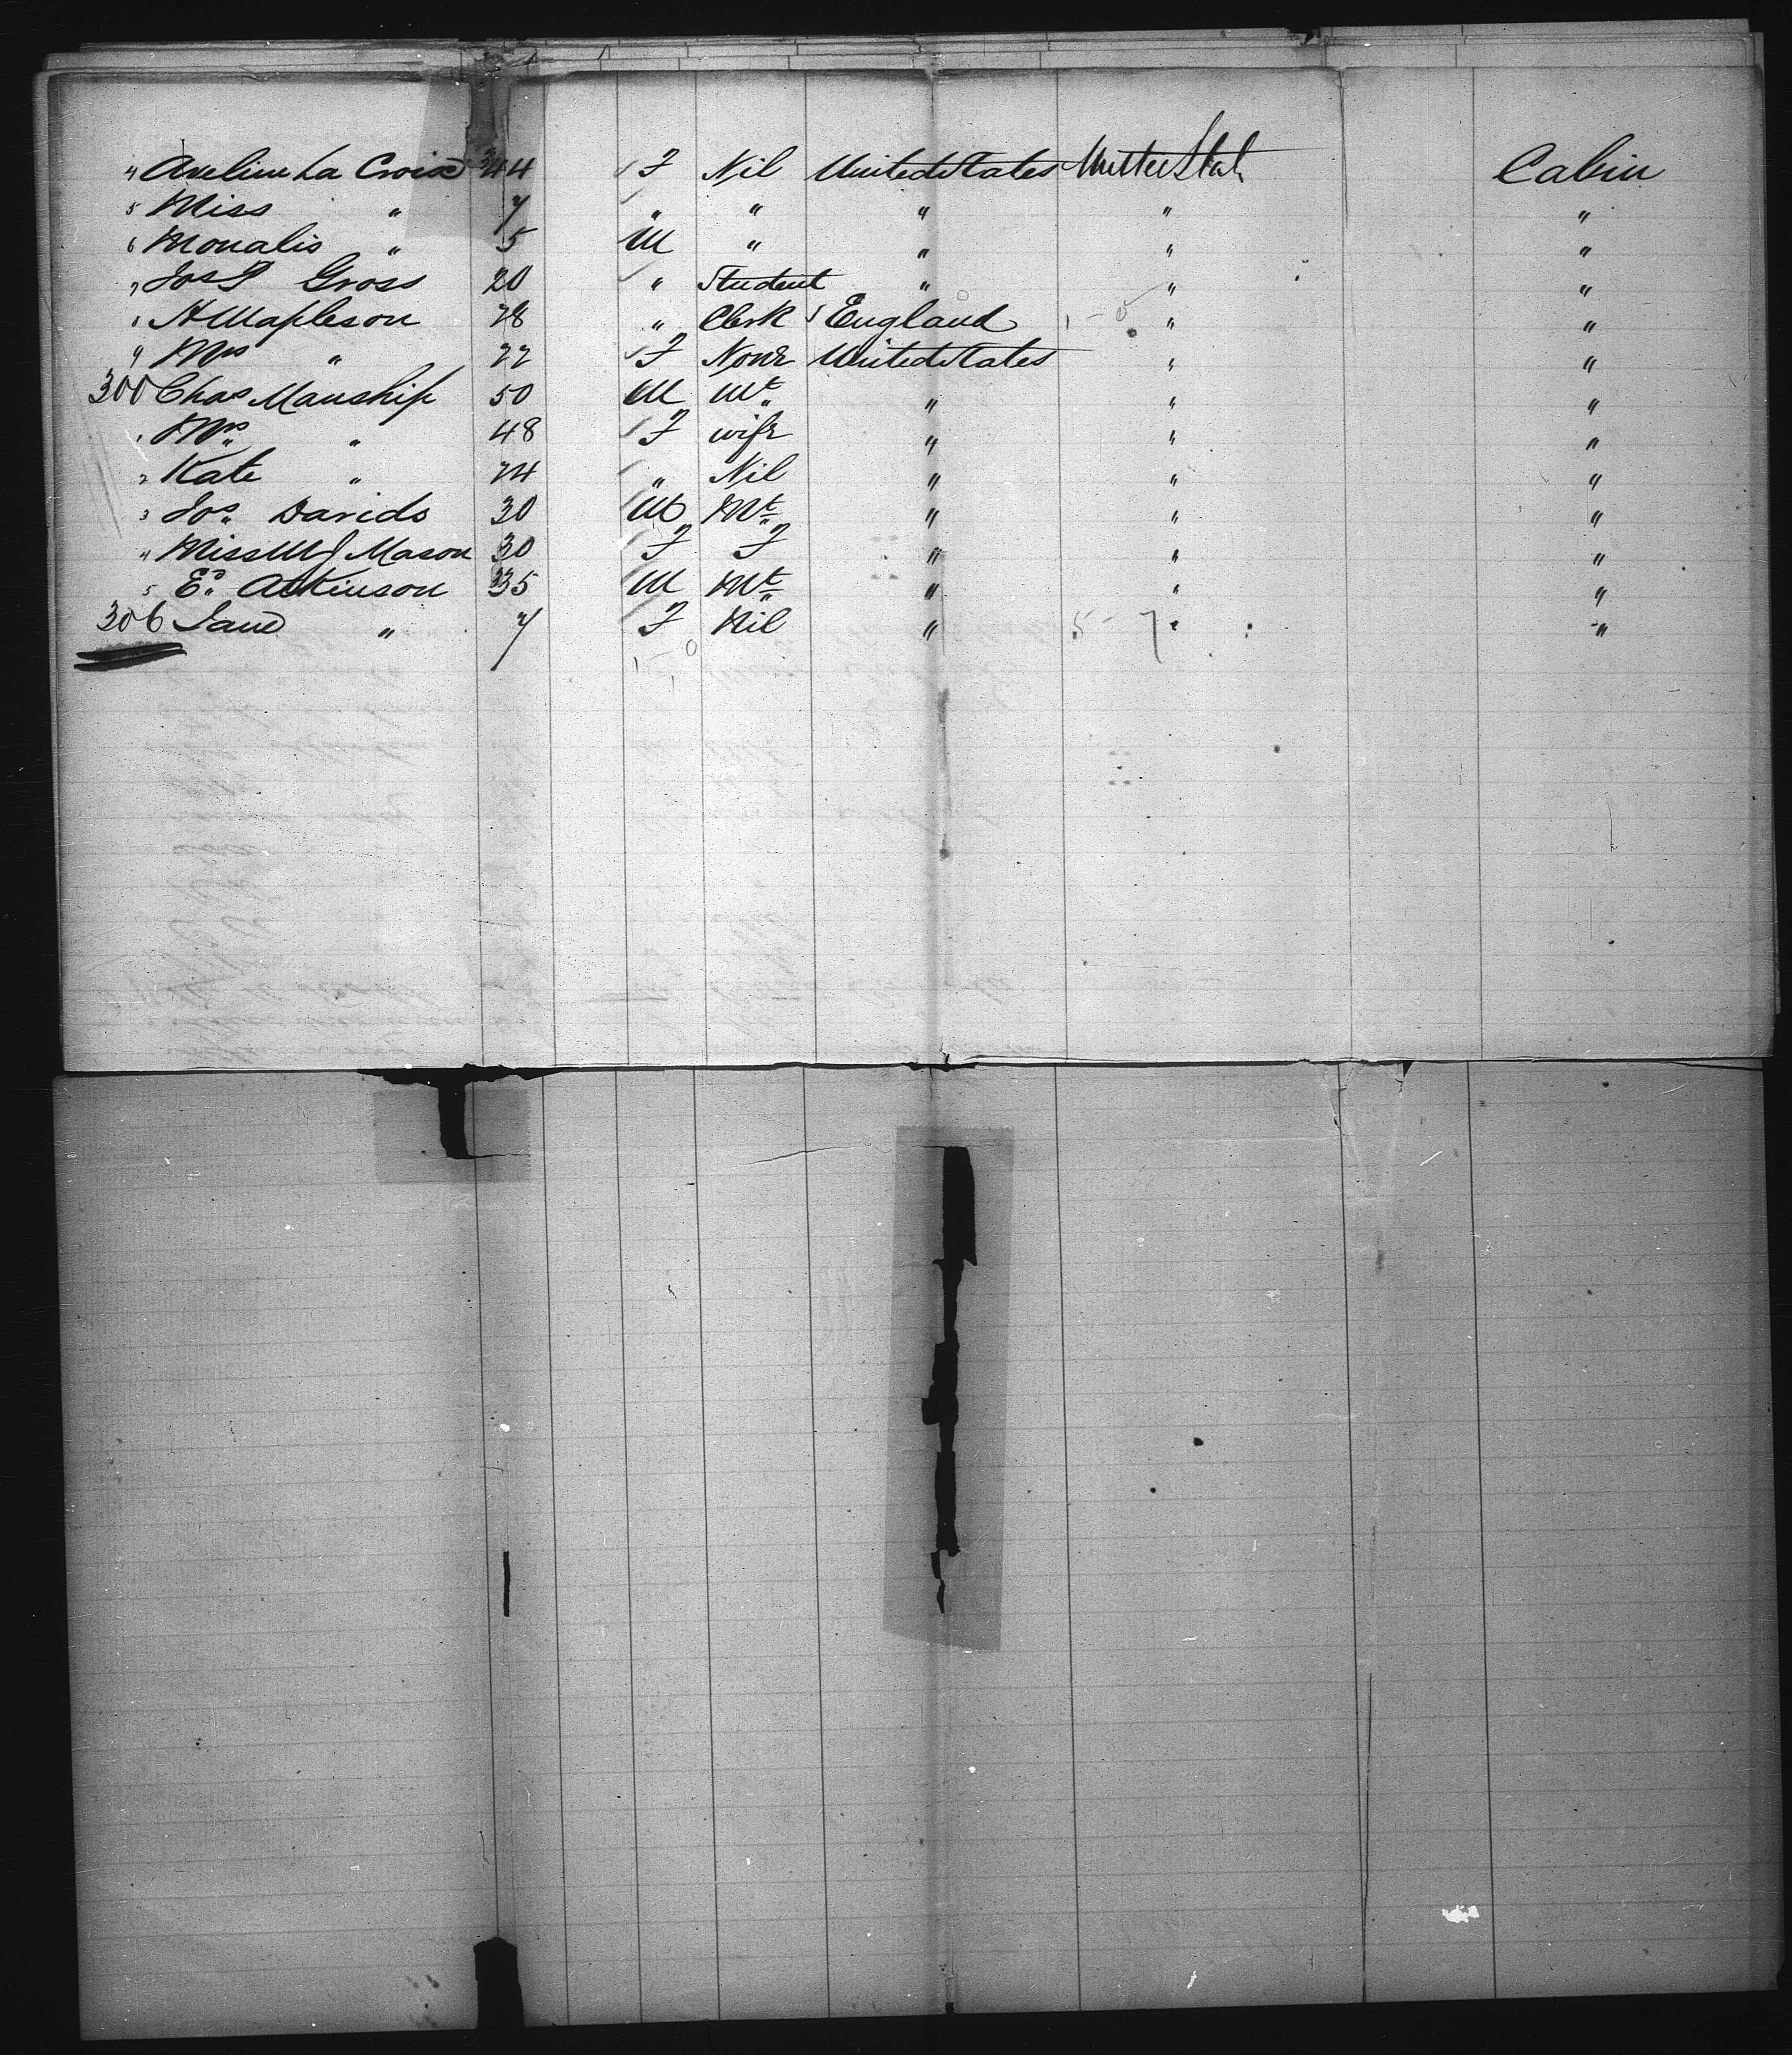 4 Aveline La Croix 44 F Nil United States United States Cabin
5 Miss " 7 " " " " "
6 Monalis " 5 M " " " "
7 Jos P Gross 20 " Student " " "
8 H Mapleson 28 " Clerk England " "
9 Mrs " 22 F None United States " "
300 Chas Manship 50 M Mt " " "
1 Mrs " 48 F wife " " "
2 Kate " 24 " Nil " " "
3 Jos. Davids 30 M Mt " " "
4 Miss M J Mason 30 F F " " "
5 Ed. Atkinson 35 M Mt " " "
306 Jane " 7 F Nil " " "